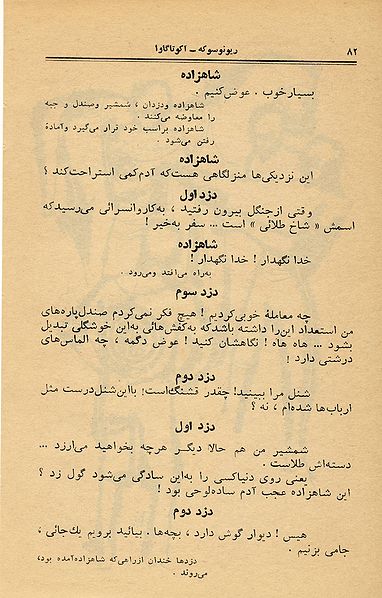 ریونوسوکه ـ آکوتاگاوا
۸۲
شاهزاده
بسیارخوب . عوض کنیم .
شاهزاده ودزدان ، شمشیر وصندل و جبه
را معاوضه می‌کنند .
شاهزاده براسب خود قرار می‌گیرد وآمادهٔ
رفتن می‌شود .
شاهزاده
این نزدیکی‌ها منزلگاهی هست‌که آدم‌کمی استراحت‌کند ؟
دزد اول
وقتی ازجنگل بیرون رفتید ، به‌کاروانسرائی می‌رسیدکه
اسمش « شاخ طلائی » است ... سفر به‌خیر !
شاهزاده
خدا نگهدار ! خدا نگهدار !
به‌راه می‌افتد ومی‌رود .
دزد سوم
چه معاملهٔ خوبی‌کردیم ! هیچ فکر نمی‌کردم صندل‌پاره‌های
من استعداد این‌را داشته باشدکه به‌کفش‌هائی به‌این خوشگلی تبدیل
بشود ... هاه هاه ! نگاهشان کنید ! عوض دگمه ، چه الماس‌های
درشتی دارد !
دزد دوم
شنل مرا ببینید! چقدر قشنگ‌است! بااین‌شنل‌درست مثل
ارباب‌ها شده‌ام ، نه ؟
دزد اول
شمشیر من هم حالا دیگر هرچه بخواهید می‌ارزد ...
دسته‌اش طلاست .
یعنی روی دنیاکسی را به‌این سادگی می‌شود گول زد ؟
این شاهزاده عجب آدم ساده‌لوحی بود !
دزد دوم
هیس ! دیوار گوش دارد ، بچه‌ها . بیائید برویم یك‌جائی ،
جامی بزنیم .
دزدها خندان ازراهی‌که شاهزاده‌آمده بود،
می‌روند .